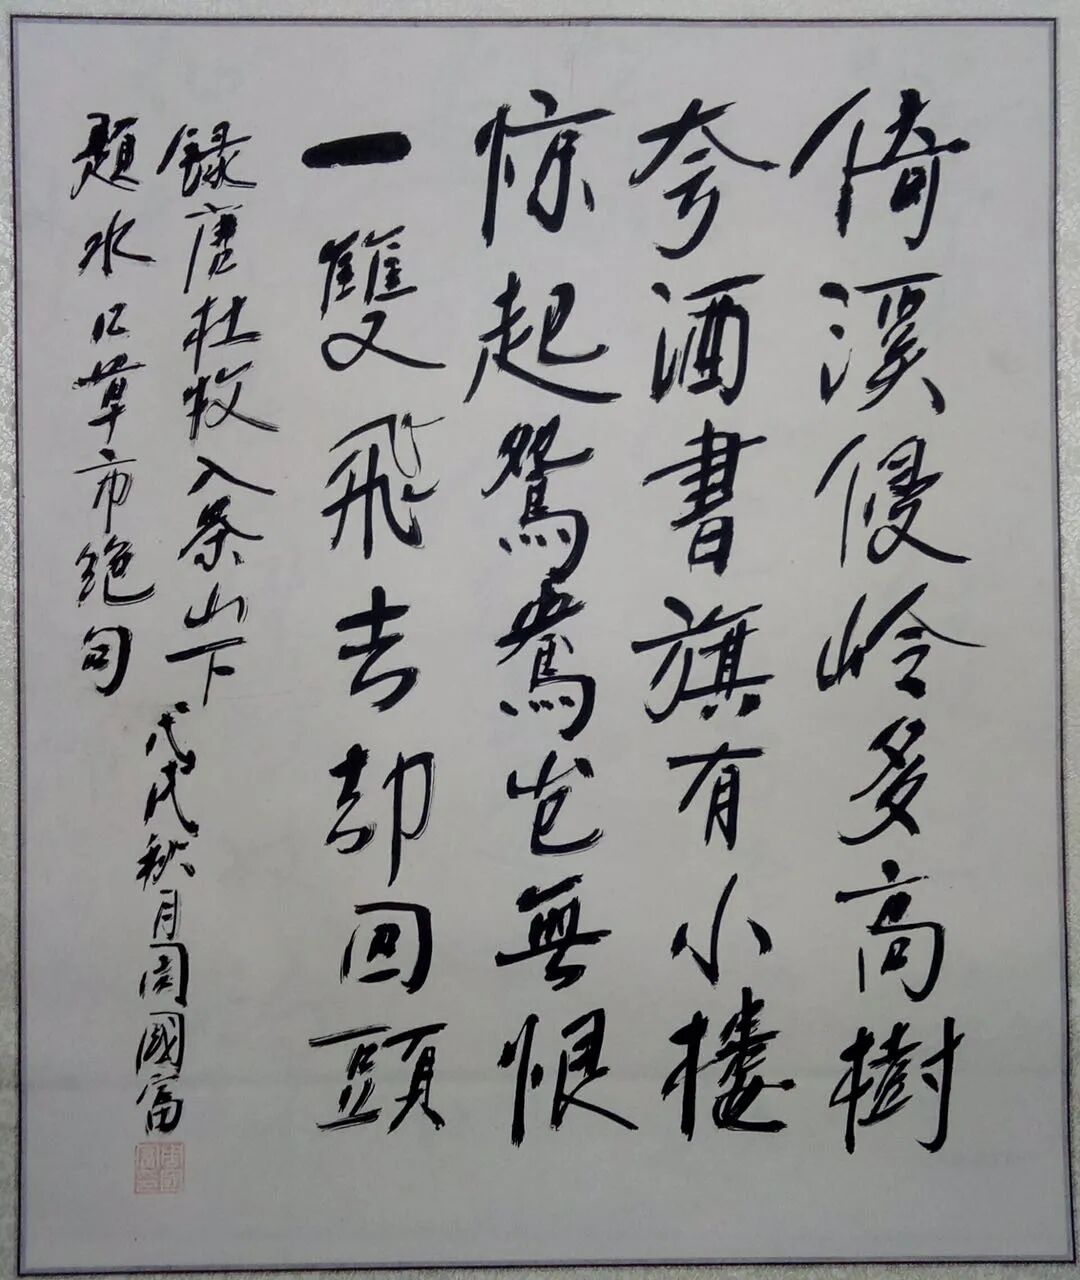 倚溪侵岭多高樹
夸酒書旗有小樓
惊起鴛鴦岂無恨
一雙飛去却回頭
録唐杜牧入茶山下
題水口草市絶句
戊戌秋月周國富